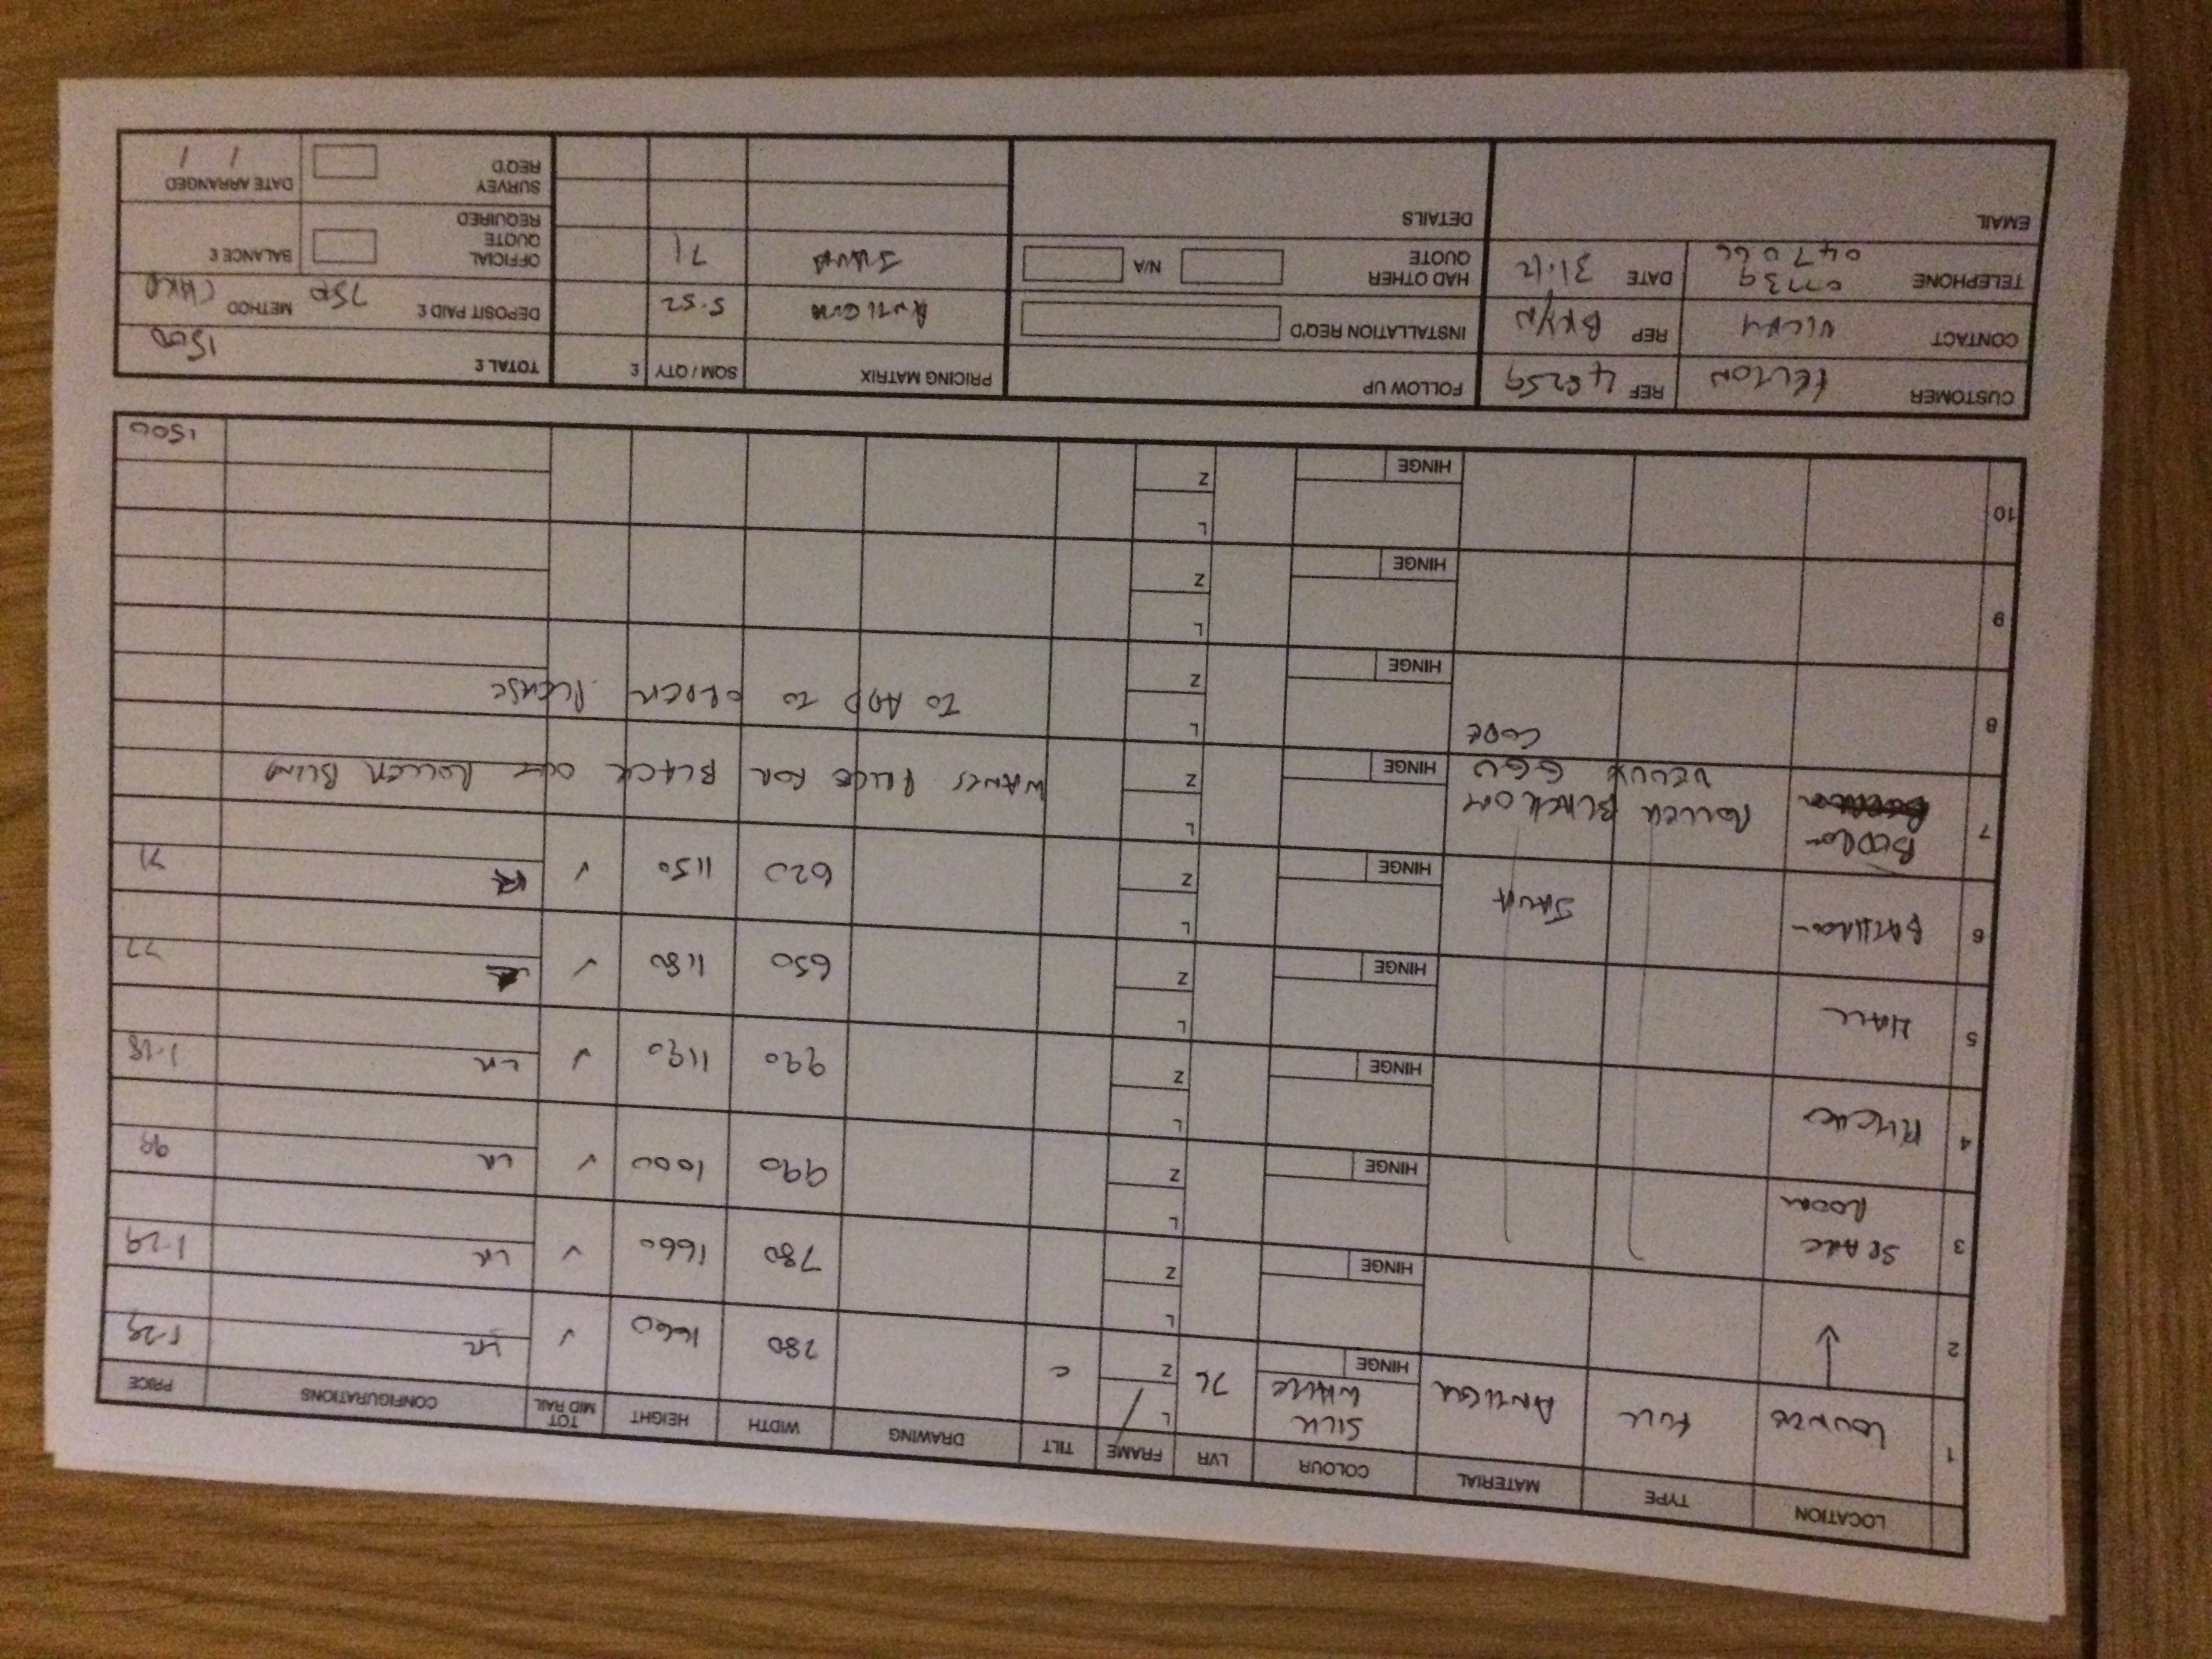 LOCATION TYPE MATERIAL COLOUR LVR FRAME TILT DRAWING WIDTH HEIGHT TOT MID RAIL CONFIGURATIONS PRICE
1 LOUNGE FULL ANTIGUA SILK WHITE HINGE 76 L Z C 780 1660 ✓ LR 1.29
2 HINGE L Z 780 1660 ✓ LR 1.29
3 SPARE ROOM HINGE L Z 990 1000 ✓ LR 99
4 KITCHEN HINGE L Z 990 1190 ✓ LR 1.18
5 HALL HINGE L Z 650 1180 ✓ 77
6 BATHROOM JAVA HINGE L Z 620 1150 ✓ 71
7 BEDROOM ROLLER BLACKOUT HINGE L Z WANTS PRICE FOR BLACK OUT ROLLER BLIND
VELUX GGU
CODE
8 HINGE L Z TO ADD TO ORDER PLEASE
9 HINGE L Z
10 HINGE L Z 1500
CUSTOMER FELTON REF 48259 FOLLOW UP PRICING MATRIX SQM / QTY £ TOTAL £ 1500
CONTACT VICKY REP BRYN INSTALLATION REQ'D ANTIGUA 5.52 DEPOSIT PAID £ 750 METHOD CARD
TELEPHONE 07739 047066 DATE 31.12 HAD OTHER QUOTE N/A JAVA 71 OFFICIAL QUOTE REQUIRED BALANCE £
EMAIL DETAILS SURVEY REQ'D DATE ARRANGED / /